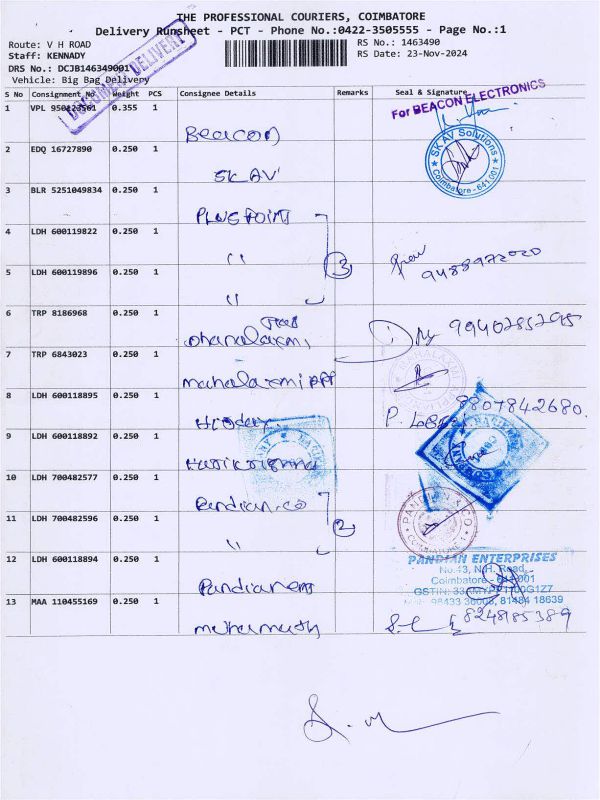 THE PROFESSIONAL COURIERS, COIMBATORE
Delivery Runsheet - PCT - Phone No.:0422-3505555 - Page No.:1
Route: V H ROAD
RS No.: 1463490
Staff: KENNADY
RS Date: 23-Nov-2024
DRS No.: DCJB146349001
Vehicle: Big Bag Delivery
DOCUMENT DELIVERY
S No Consignment No Weight PCS Consignee Details Remarks Seal & Signature
For BEACON ELECTRONICS
1 VPL 950223561 0.355 1 Beacon
SK AV Solutions
Coimbatore - 641 001
2 EDQ 16727890 0.250 1 SK AV
3 BLR 5251049834 0.250 1 PLUS POINT
4 LDH 600119822 0.250 1 " 3
5 LDH 600119896 0.250 1 "
6 TRP 8186968 0.250 1 Dhanalaxmi
9940285295
7 TRP 6843023 0.250 1 mahalaxmi
MAHALAXMI
8 LDH 600118895 0.250 1
8807842680.
9 LDH 600118892 0.250 1
10 LDH 700482577 0.250 1 Pandian.co
PANDIAN & CO
COIMBATORE
11 LDH 700482596 0.250 1 " 2
12 LDH 600118894 0.250 1 Pandian
PANDIAN ENTERPRISES
No.43, N.H. Road,
Coimbatore - 641 001
13 MAA 110455169 0.250 1
8248185389